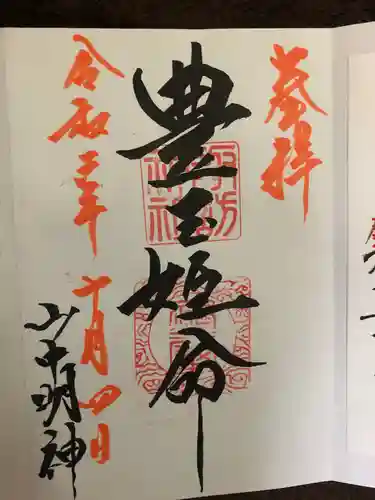 奉拝
豊玉姫命
諏訪
神社
令和三年
十月四日
山中明神